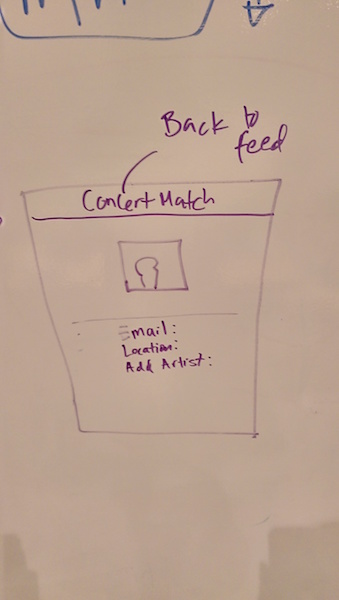 Back to
feed
Concert Match
Email:
Location:
Add Artist: